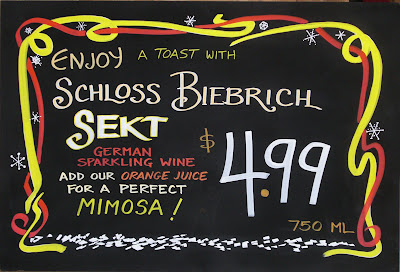 ENJOY A TOAST WITH
SCHLOSS BIEBRICH
SEKT
GERMAN
SPARKLING WINE
ADD OUR ORANGE JUICE
FOR A PERFECT
MIMOSA!
$4.99
750 ML